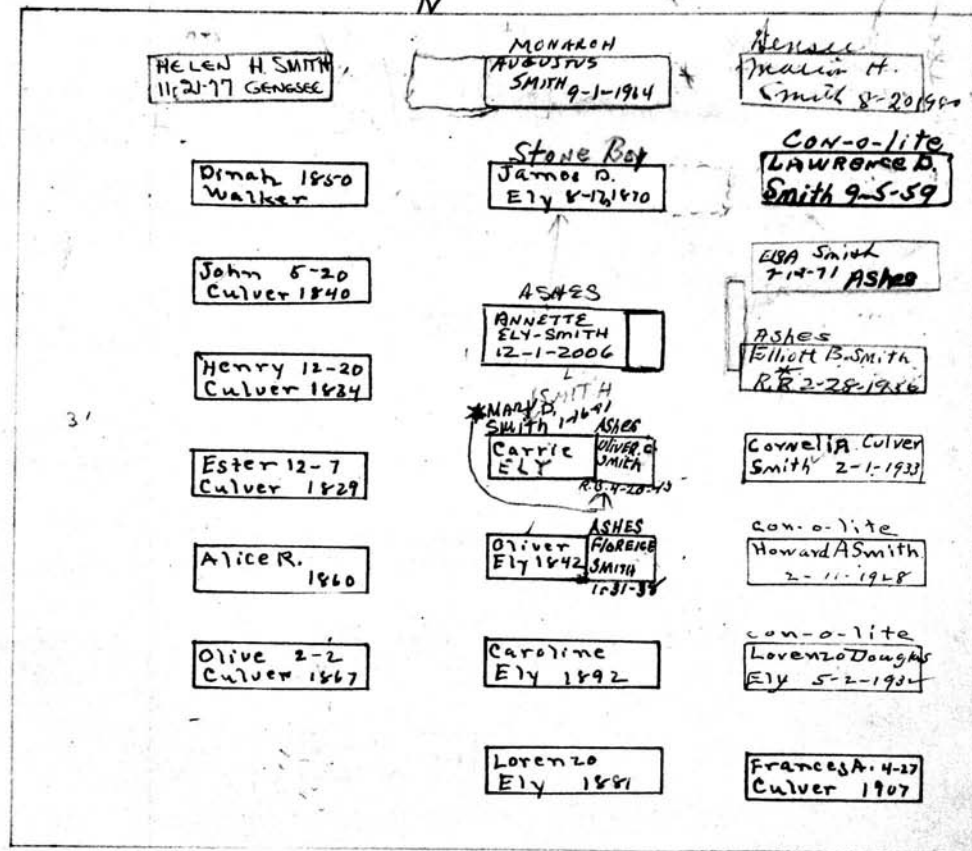 N
HELEN H. SMITH
11-21-77 GENGSEE
Dinah 1850
Walker
John 5-20
Culver 1840
Henry 12-20
Culver 1834
3'
Ester 12-7
Culver 1829
Alice R.
1860
Olive 2-2
Culver 1867
MONARCH
AUGUSTUS
SMITH 9-1-1964
Stone Box
James D.
Ely 8-12-1870
ASHES
ANNETTE
ELY-SMITH
12-1-2006
SMITH
*MARY D.
Smith 1-16-91
Carrie
ELY
Ashes
OLIVER C.
Smith
R.B. 4-20-43
Oliver
Ely 1842
ASHES
FLOREIGE
SMITH
1-31-38
Caroline
Ely 1892
Lorenzo
Ely 1881
H.
Smith 8-20-1980
Con-o-lite
LAWRENCE D.
Smith 9-5-59
Elsa Smith
7-14-71 Ashes
Ashes
Elliott B. Smith
*
R.B. 2-28-1936
Cornelia Culver
Smith 2-1-1933
con-o-lite
Howard A Smith
2-11-1928
con-o-lite
Lorenzo Douglas
Ely 5-2-1932
Frances A. 4-27
Culver 1907